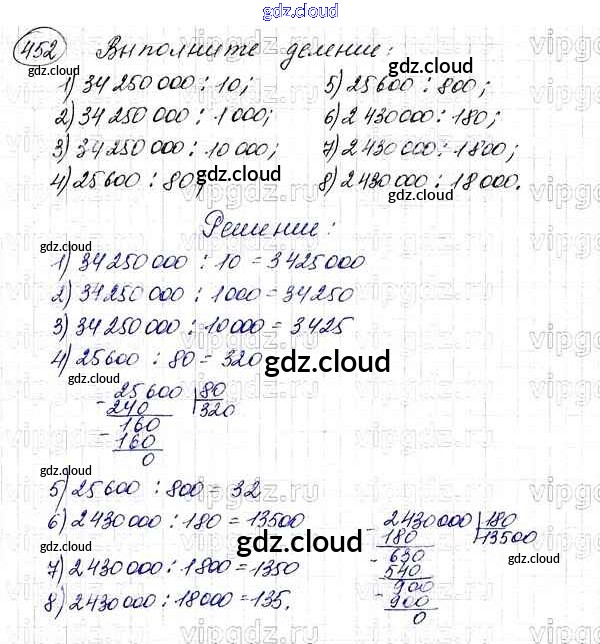 gdz.cloud
452 Выполните деление:
gdz.cloud
1) 34 250 000 : 10; 5) 25 600 : 800;
2) 34 250 000 : 1 000; 6) 2 430 000 : 180;
3) 34 250 000 : 10 000; 7) 2 430 000 : 1800;
4) 25 600 : 80; 8) 2 430 000 : 18 000.
gdz.cloud
gdz.cloud
Решение:
gdz.cloud
1) 34 250 000 : 10 = 3 425 000
2) 34 250 000 : 1000 = 34 250
3) 34 250 000 : 10 000 = 3 425
4) 25 600 : 80 = 320
gdz.cloud
- 25 600 | 80
240 320
- 160
160
0
gdz.cloud
5) 25 600 : 800 = 32
6) 2 430 000 : 180 = 13500
7) 2 430 000 : 1800 = 1350
8) 2 430 000 : 18 000 = 135.
gdz.cloud
- 2 430 000 | 180
180 13500
- 630
540
- 900
900
0
gdz.cloud
gdz.cloud
vipgdz.ru